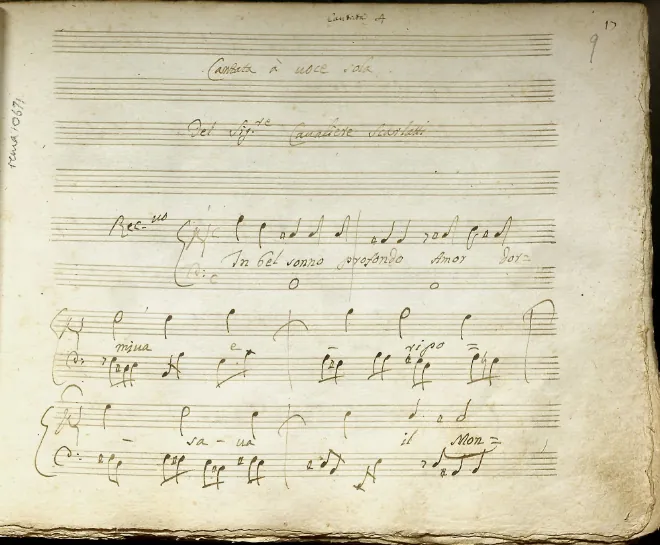 Cantata 4
17
9
Cantata à voce sola
Del Sig.re Cavaliere Scarlatti
Rec.vo
In bel sonno profondo Amor dor=
miva e ripo=
sa-va il Mon=